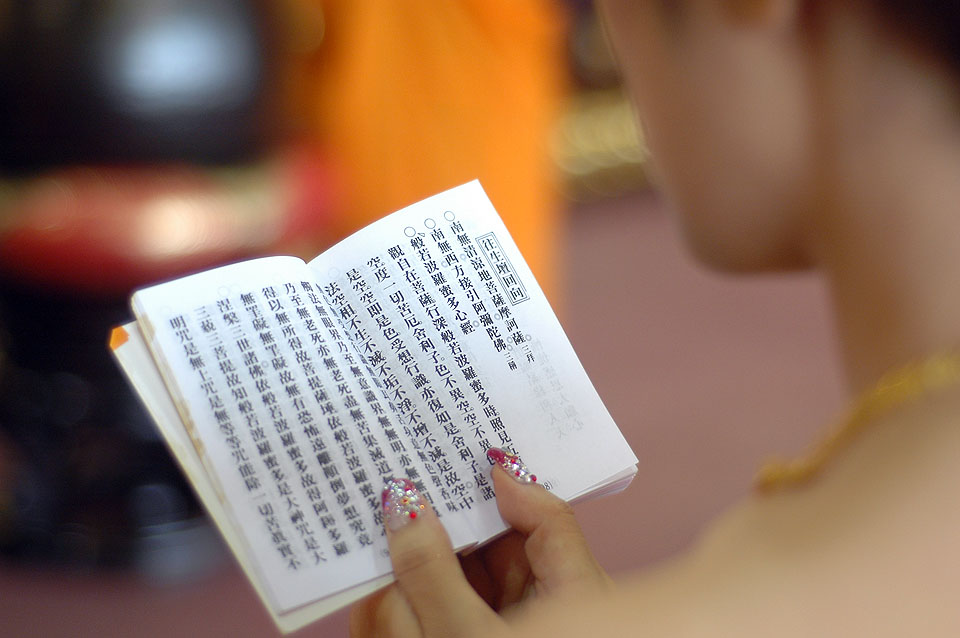 往生壇回向
南無清涼地菩薩摩訶薩 三拜
南無西方接引阿彌陀佛 三稱
般若波羅蜜多心經
觀自在菩薩行深般若波羅蜜多時照見五
空度一切苦厄舍利子色不異空空不異色
是空空即是色受想行識亦復如是舍利子是諸
法空相不生不滅不垢不淨不增不減是故空中
香味
觸法無眼界乃至無意識界無無明亦無無
乃至無老死亦無老死盡無苦集滅道
得以無所得故菩提薩埵依般若波羅蜜多故
無罣礙無罣礙故無有恐怖遠離顛倒夢想究竟
涅槃三世諸佛依般若波羅蜜多故得阿耨多羅
三藐三菩提故知般若波羅蜜多是大神咒是大
明咒是無上咒是無等等咒能除一切苦眞實不